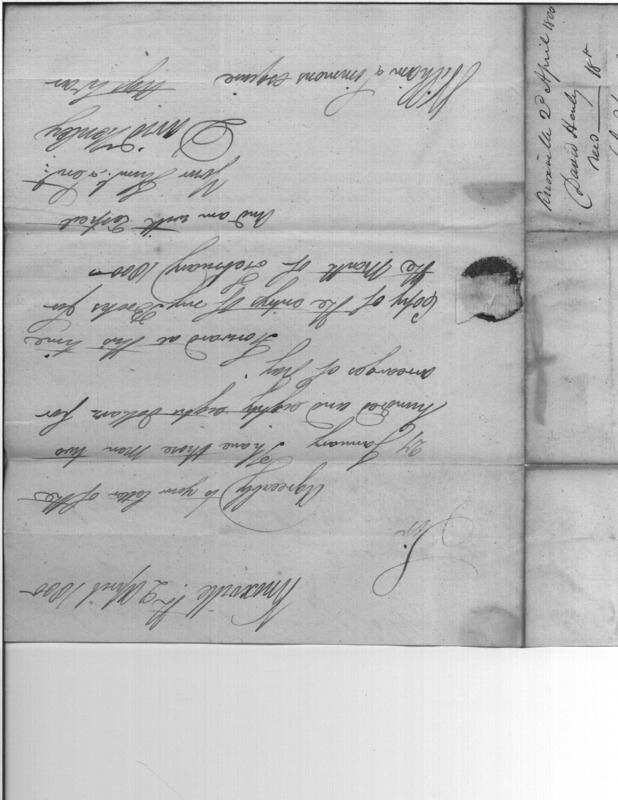 Knoxville 2 April 1800
Sir
Agreeably to your letter of the
27 January I have there
hundred and eighty eight dollars for
arrearages of pay
I forward at this time
Copy of the entrys of my Books for
the Month of February 1800
And am with respect
Your Humb. Servt.
David Henley
William Simmons Esquire
Knoxville 2d April 1800
David Henley
rec'd 18th